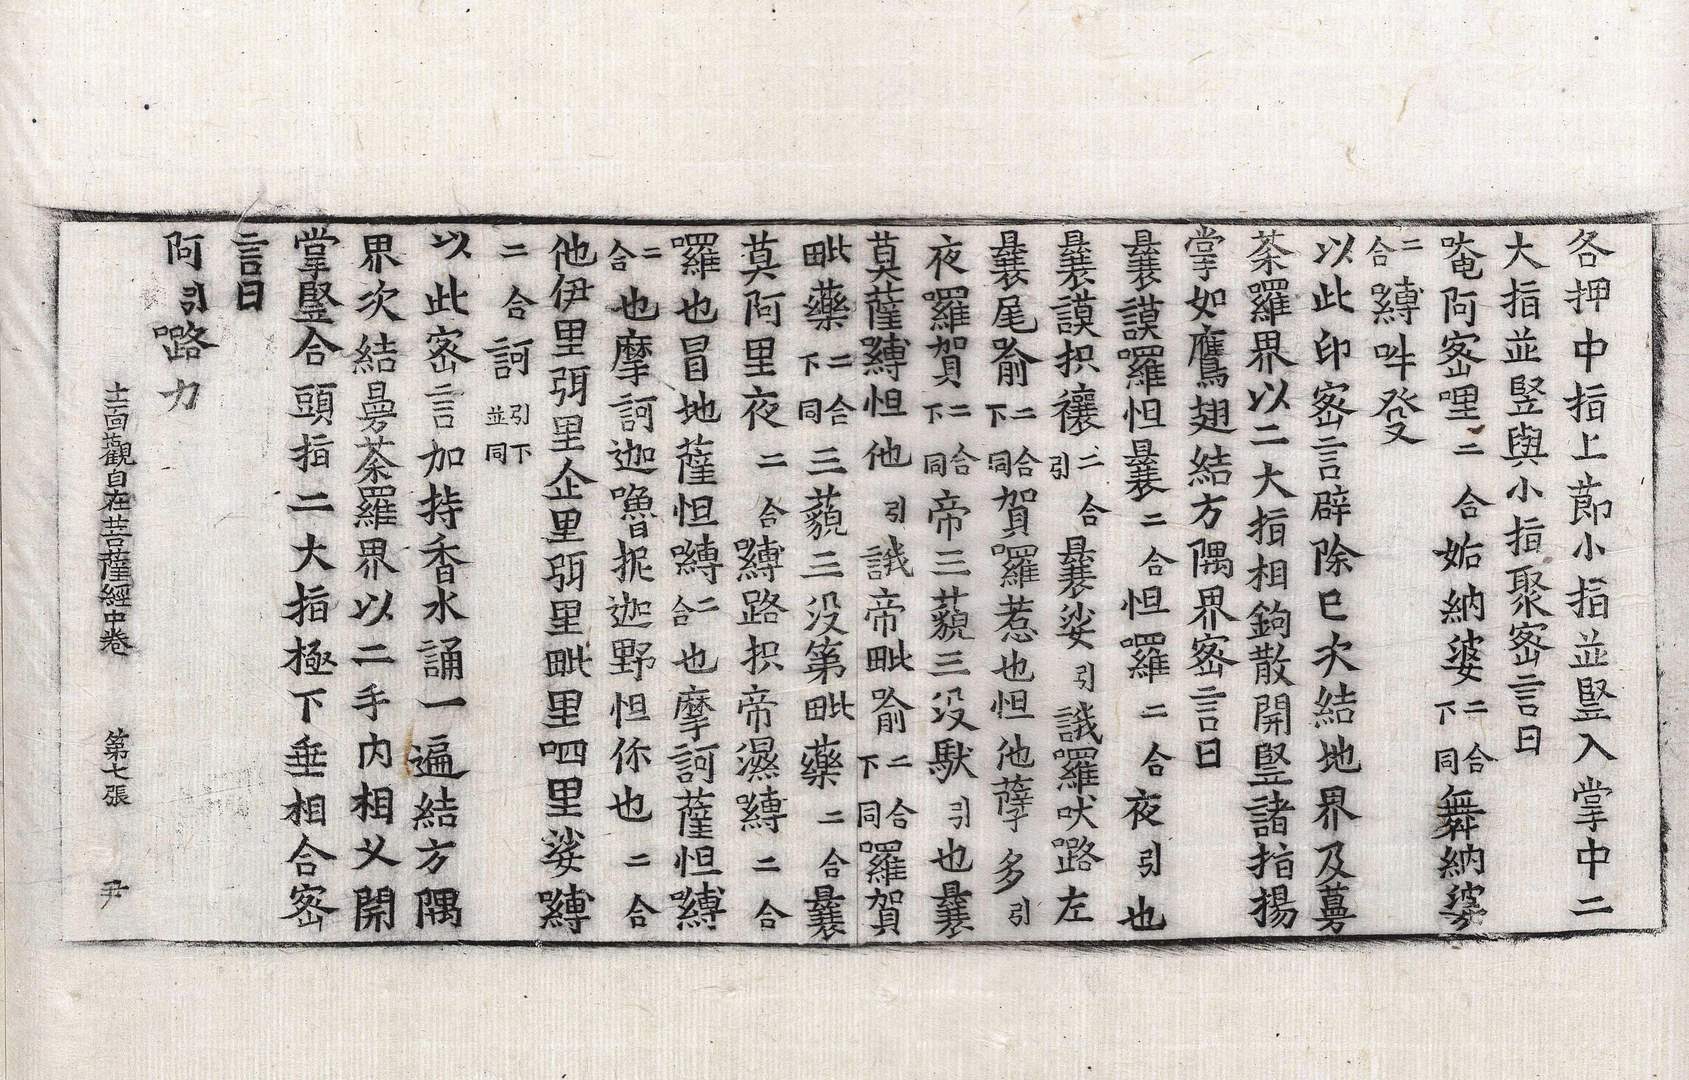 各押中指上節小指並竪入掌中二
大指並竪與小指聚密言曰
唵阿密哩二合姤納婆二合下同舞納婆
二合嚩吽發
以此印密言辟除已次結地界及蔓
荼囉界以二大指相鉤散開竪諸指揚
掌如鷹翅結方隅界密言曰
曩謨囉怛曩二合怛囉二合夜引也
曩謨枳穰二合引曩娑引誐囉吠路左
曩尾喻二合下同賀囉惹也怛他蘖多引
夜囉賀二合下同帝三藐三沒馱引也曩
莫薩嚩怛他引誐帝毗喻二合下同囉賀
毗藥二合下同三藐三沒第毗藥二合曩
莫阿里夜二合嚩路枳帝濕嚩二合
囉也冒地薩怛嚩二合也摩訶薩怛嚩
二合也摩訶迦嚕抳迦野怛你也二合
他伊里弭里企里弭里毗里呬里娑嚩
二合訶引下並同
以此密言加持香水誦一遍結方隅
界次結曼荼羅界以二手內相叉開
掌竪合頭指二大指極下垂相合密
言曰
阿引嚕力
十一面觀自在菩薩經中卷 第七張 尹